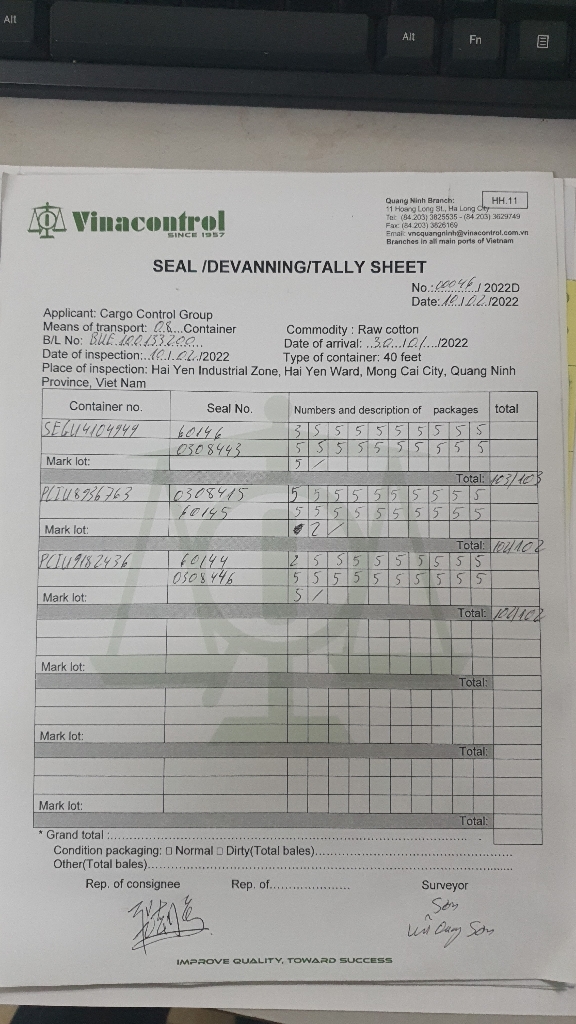 Alt
Alt
Fn
Vinacontrol
SINCE 1957
Quang Ninh Branch:
HH.11
11 Hoang Long St., Ha Long City
Tel: (84.203) 3825535 - (84.203) 3629749
Fax: (84.203) 3626169
Email: vncquangninh@vinacontrol.com.vn
Branches in all main ports of Vietnam
SEAL /DEVANNING/TALLY SHEET
No.: 00046 / 2022D
Date: 10 / 02 /2022
Applicant: Cargo Control Group
Means of transport: 08 Container
Commodity : Raw cotton
B/L No:
Date of arrival: 30 / 01 /2022
Date of inspection: 10 / 02 /2022
Type of container: 40 feet
Place of inspection: Hai Yen Industrial Zone, Hai Yen Ward, Mong Cai City, Quang Ninh
Province, Viet Nam
Container no. Seal No. Numbers and description of packages total
SEGU4104949 60146 3 5 5 5 5 5 5 5 5 5
0308443 5 5 5 5 5 5 5 5 5 5
Mark lot: 5 /
Total: 103/103
PCIU8936763 0308415 5 5 5 5 5 5 5 5 5 5
60145 5 5 5 5 5 5 5 5 5 5
Mark lot: 2 /
Total: 102/102
PCIU9182436 60144 2 5 5 5 5 5 5 5 5 5
0308446 5 5 5 5 5 5 5 5 5 5
Mark lot: 5 /
Total: 102/102
Mark lot:
Total:
Mark lot:
Total:
Mark lot:
Total:
* Grand total :
Condition packaging: □ Normal □ Dirty(Total bales)
Other(Total bales)
Rep. of consignee Rep. of Surveyor
Sơn
Sơn
IMPROVE QUALITY, TOWARD SUCCESS